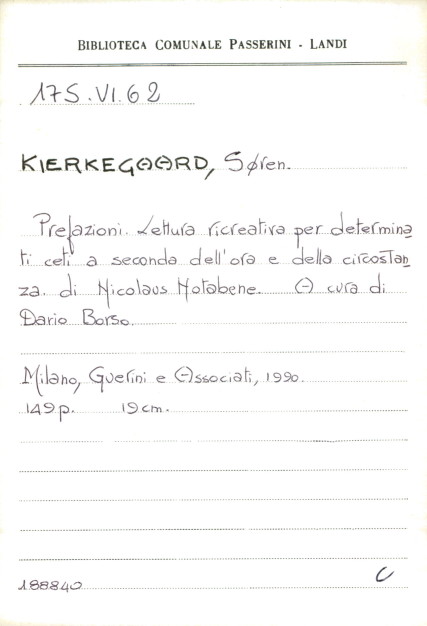 BIBLIOTECA COMUNALE PASSERINI - LANDI
175.VI.62
KIERKEGAARD, Søren.
Prefazioni. Lettura ricreativa per determina
ti ceti a seconda dell'ora e della circostan
za. di Nicolaus Notabene. A cura di
Dario Borso.
Milano, Guerini e Associati, 1990.
149p. 19cm.
188840 C